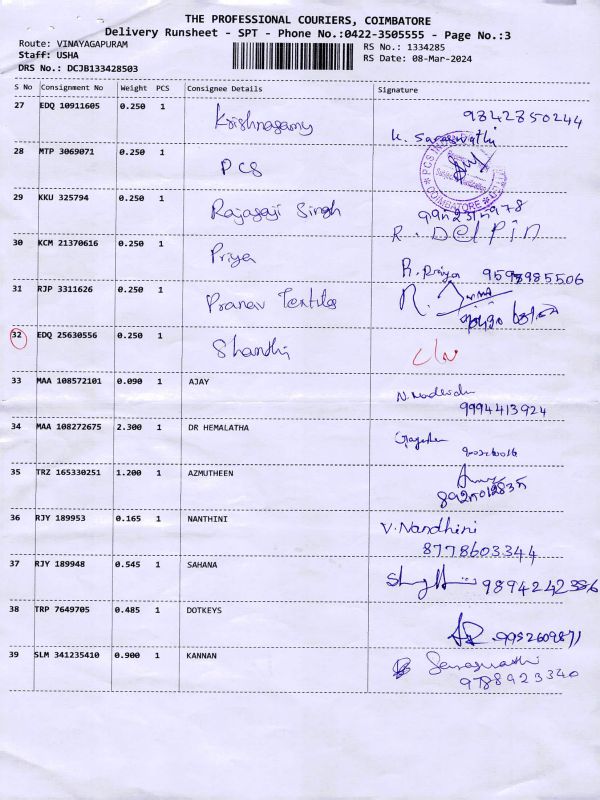 THE PROFESSIONAL COURIERS, COIMBATORE
Delivery Runsheet - SPT - Phone No.:0422-3505555 - Page No.:3
Route: VINAYAGAPURAM
RS No.: 1334285
Staff: USHA
RS Date: 08-Mar-2024
DRS No.: DCJB133428503
S No Consignment No Weight PCS Consignee Details Signature
27 EDQ 10911605 0.250 1 Krishnasamy 9842850244
K. Saraswathi
28 MTP 3069071 0.250 1 PCS
COIMBATORE
29 KKU 325794 0.250 1 Rajasaji Singh
R. Delpin
30 KCM 21370616 0.250 1 Priya
R. Priya 9598985506
31 RJP 3311626 0.250 1 Pranav Textiles
32 EDQ 25630556 0.250 1 Shanthi
33 MAA 108572101 0.090 1 AJAY
9994413924
34 MAA 108272675 2.300 1 DR HEMALATHA
35 TRZ 165330251 1.200 1 AZMUTHEEN
36 RJY 189953 0.165 1 NANTHINI V. Nandhini
8778603344
37 RJY 189948 0.545 1 SAHANA
9894242386
38 TRP 7649705 0.485 1 DOTKEYS
9952609871
39 SLM 341235410 0.900 1 KANNAN
9788923340